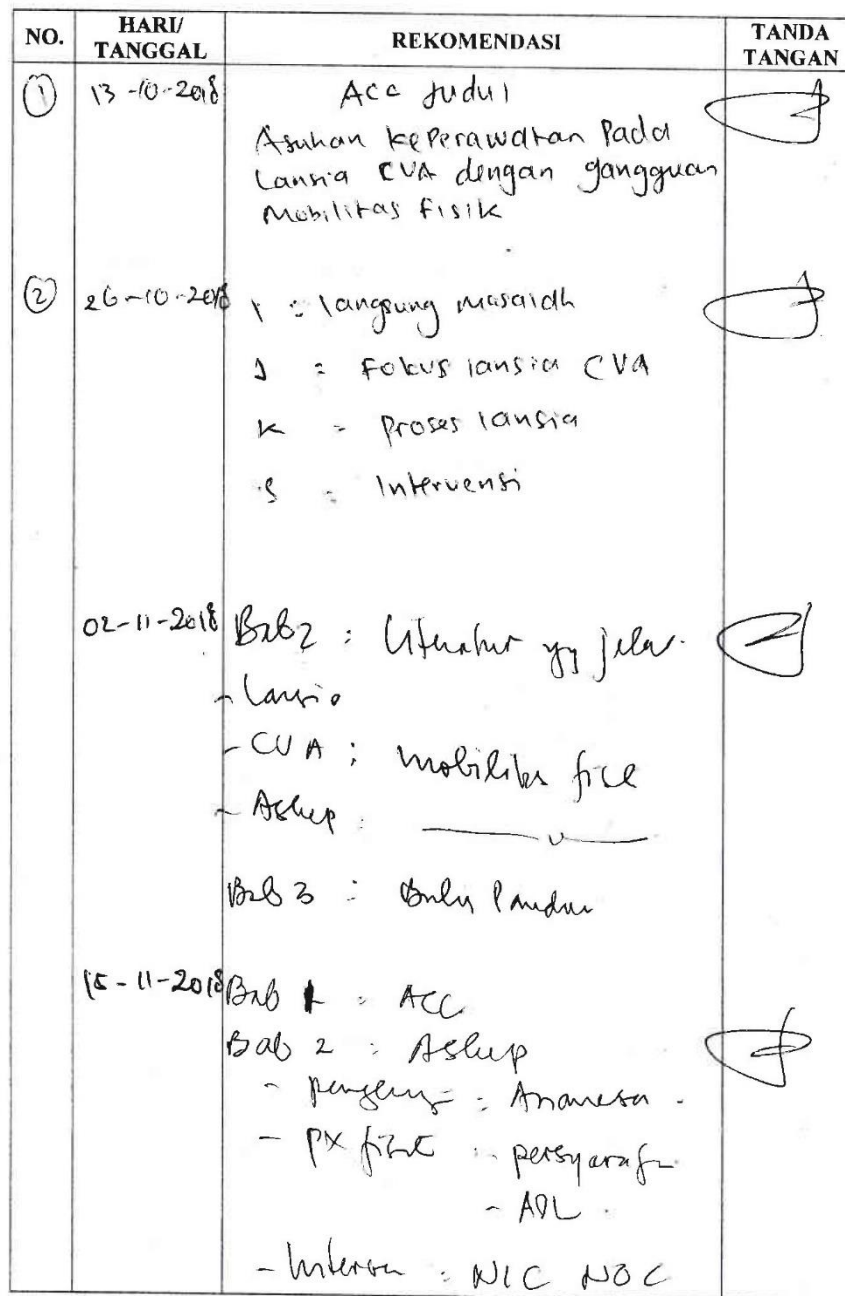 NO. HARI/ TANGGAL REKOMENDASI TANDA TANGAN
1 13-10-2018 Acc Judul
Asuhan keperawatan Pada
Lansia CVA dengan gangguan
Mobilitas Fisik
2 26-10-2018 I = langsung masalah
J = Fokus lansia CVA
K = Proses lansia
S = Intervensi
02-11-2018 Bab 2 : Literatur yg jelas.
- Lansia
- CVA : mobilitas fisik
- Askep :
Bab 3 : Buku Panduan
15-11-2018 Bab 1 = ACC
Bab 2 : Askep
- : Anamesa.
- px fisik : persyarafan
- ADL.
- Interven : NIC NOC